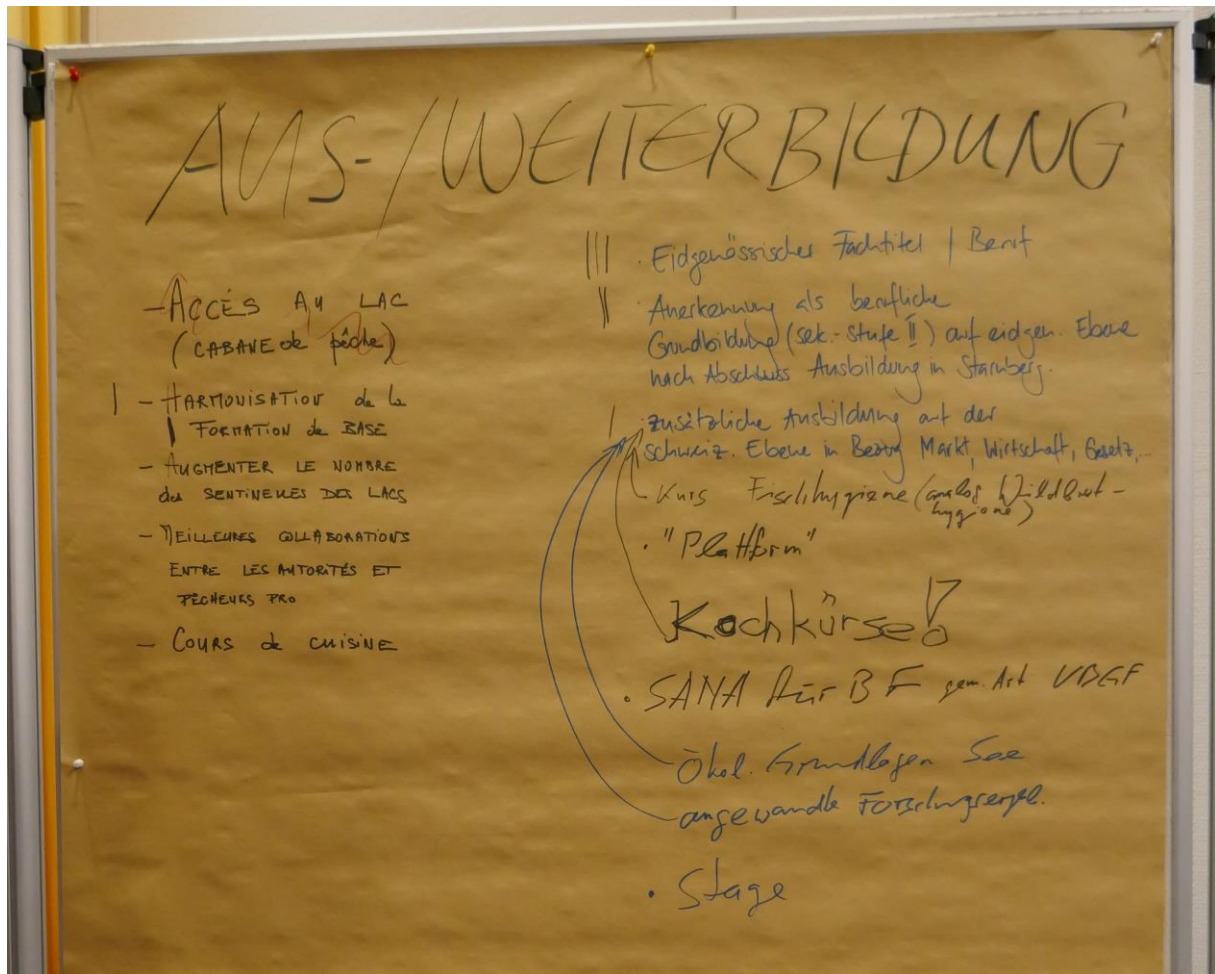 AUS-/WEITERBILDUNG
- ACCÈS AU LAC
(CABANE de pêche)
- HARMONISATION de la
FORMATION de BASE
- AUGMENTER LE NOMBRE
des SENTINELLES DES LACS
- MEILLEURES COLLABORATIONS
ENTRE LES AUTORITÉS ET
PÊCHEURS PRO
- COURS de CUISINE
· Eidgenössischer Fachtitel / Beruf
· Anerkennung als berufliche
Grundbildung (sek.-Stufe II) auf eidgen. Ebene
nach Abschluss Ausbildung in Starnberg.
· zusätzliche Ausbildung auf der
schweiz. Ebene in Bezug Markt, Wirtschaft, Gesetz,...
- Kurs Fischhygiene (analog Wildbret-
hygiene)
· "Plattform"
Kochkürse!
· SANA für BF gem. Art VBGF
Ökol. Grundlagen See
angewandte Forschungsergeb.
· Stage